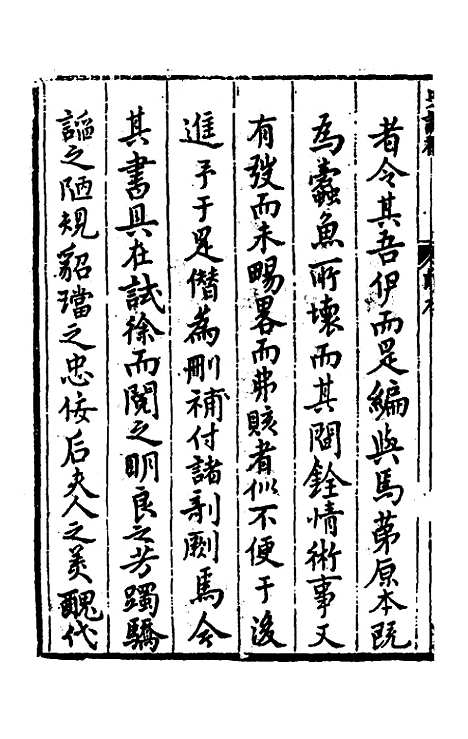 者令其吾伊而是編與馬第原本既
為蠹魚所壞而其間銓情術事又
有發而未暢畧而弗賅者似不便于後
進予于是僭為刪補付諸剞劂馬今
其書具在試徐而閱之明良之芳躅驕
謳之陋規貂璫之忠佞后夫人之美醜代